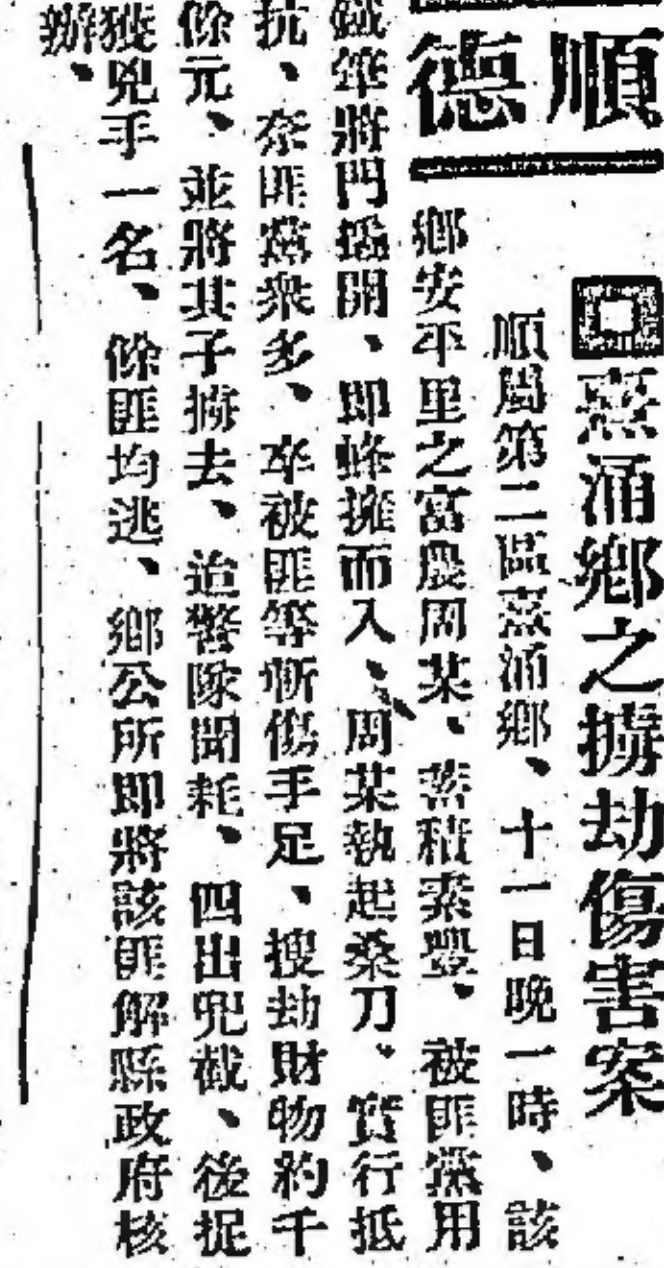 順德
▣熹涌鄉之擄劫傷害案
順屬第二區熹涌鄉、十一日晚一時、該
鄉安平里之富農周某、蓄積素豐、被匪黨用
鐵筆將門撬開、即蜂擁而入、周某執起桑刀、實行抵
抗、奈匪黨衆多、卒被匪等斬傷手足、搜劫財物約千
餘元、並將其子擄去、迨警隊聞耗、四出兜截、後捉
獲兇手一名、餘匪均逃、鄉公所即將該匪解縣政府核
辦、